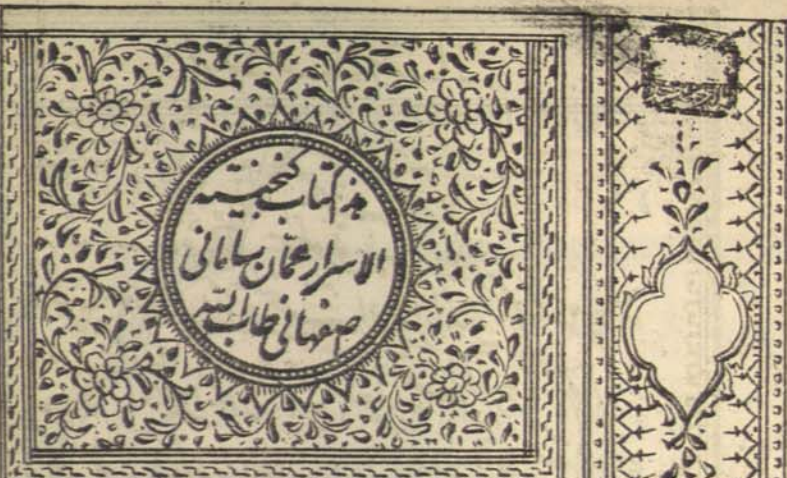 هذا کتاب گنجینه
الاسرار عمّان سامانی
اصفهانی طاب الله